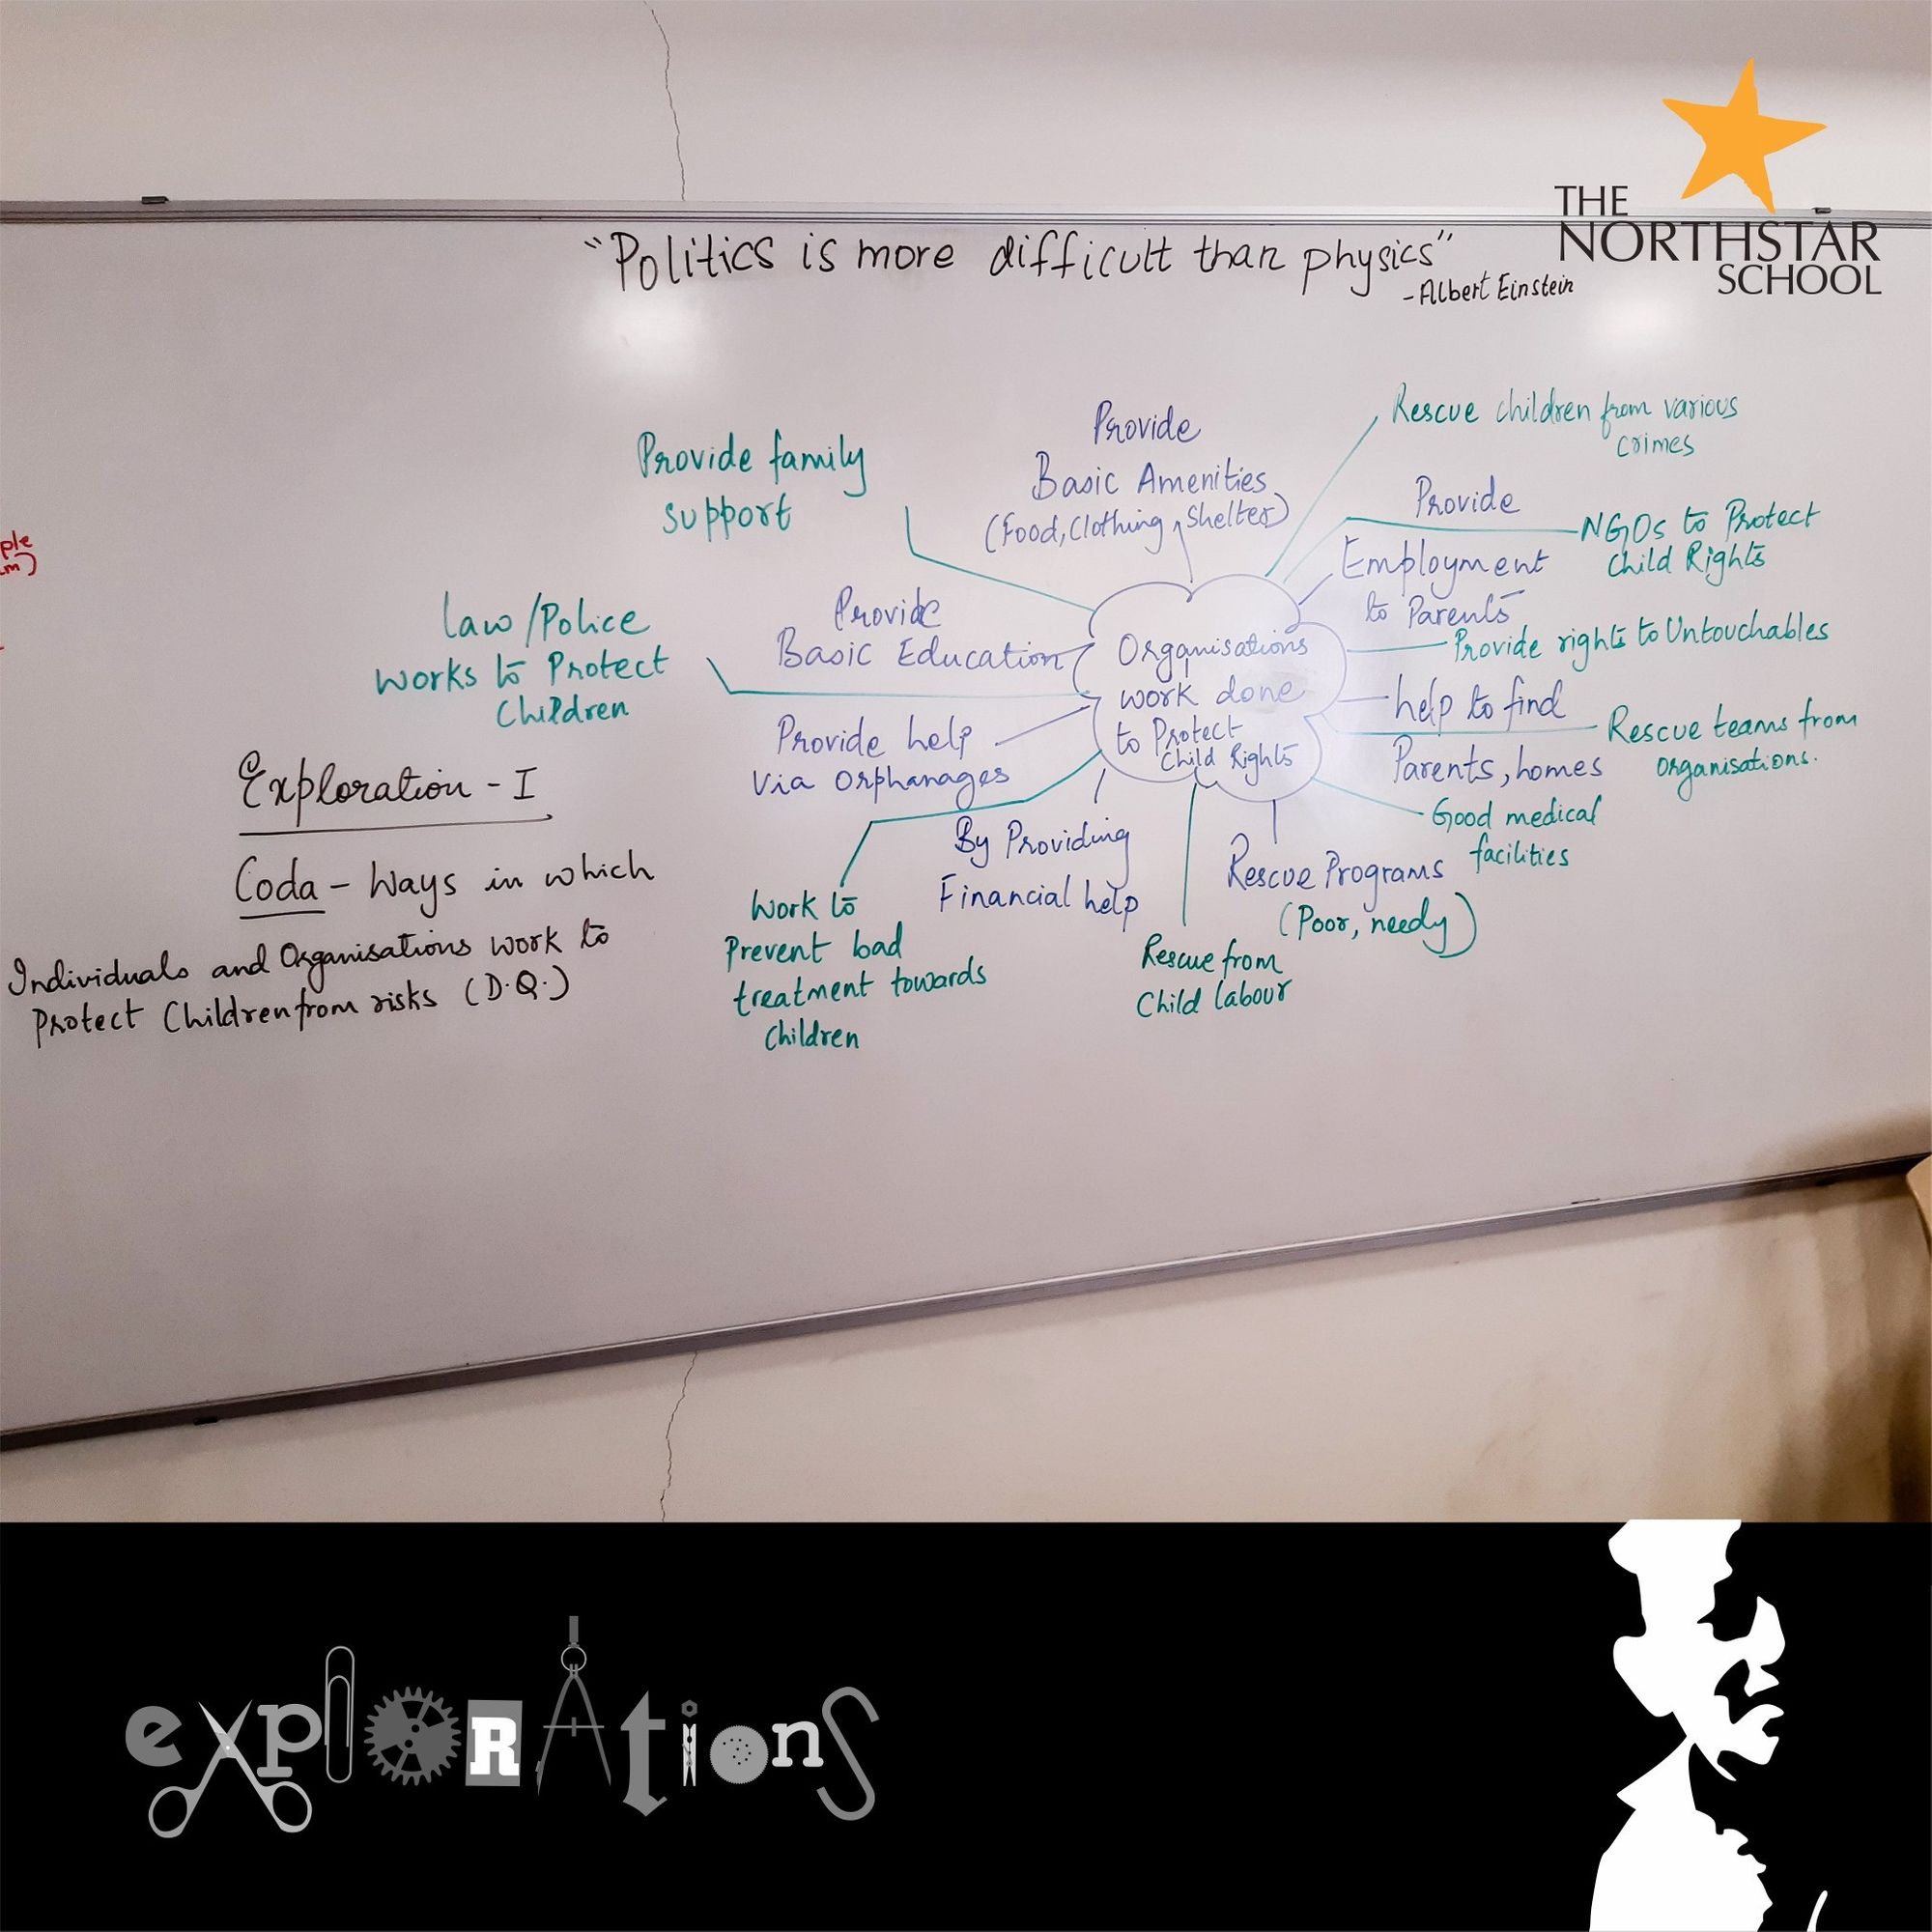 THE
NORTHSTAR
SCHOOL
"Politics is more difficult than physics"
-Albert Einstein
Provide family
support
Provide
Basic Amenities
(Food, Clothing, Shelter)
Rescue children from various
crimes
Provide
Employment
to Parents
NGOs to Protect
Child Rights
Law/Police
works to Protect
Children
Provide
Basic Education
Organisations
work done
to Protect
Child Rights
Provide rights to Untouchables
help to find
Parents, homes
Rescue teams from
organisations.
Provide help
via Orphanages
Good medical
facilities
By Providing
Financial help
Rescue Programs
(Poor, needy)
Work to
Prevent bad
treatment towards
Children
Rescue from
Child labour
Exploration - I
Coda - Ways in which
Individuals and Organisations work to
Protect Children from risks (D.Q.)
explorAtionS